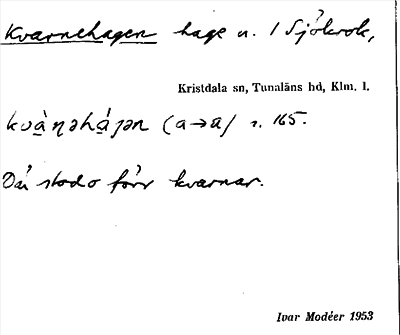 Kvarnehagen hage n. 1 Sjökrok,
Kristdala sn, Tunaläns hd, Klm. l.
kvą̀ꞃəhą́ɟən (a→a) s. 165.
Där stodo förr kvarnar.
Ivar Modéer 1953